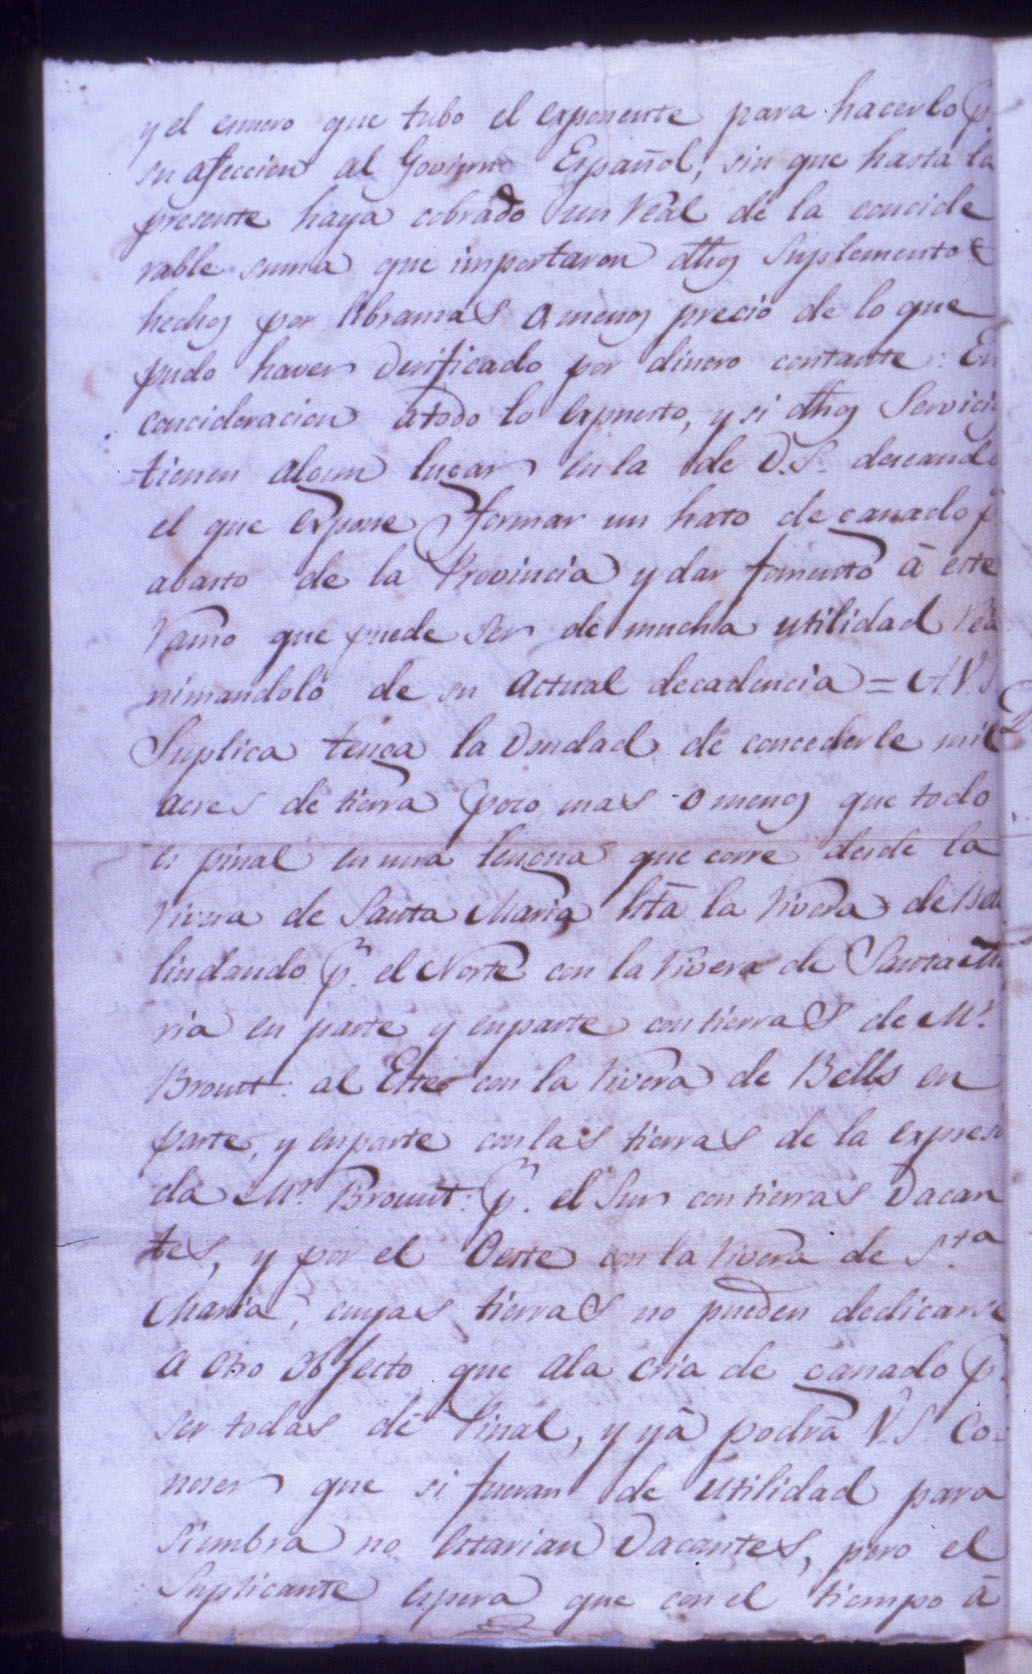 y el esmero que tubo el exponente para hacerlo p.
su afeccion al Govierno Español, sin que hasta la
presente haya cobrado un Real de la concide
rable suma que importaron dhos Suplementos
hechos por libramas a menos precio de lo que
pudo haver Verificado por dinero contante: En
concideracion atodo lo expuesto, y si dhos Servicios
tienen algun lugar en la de V.S. deseando
el que expone formar un hato de ganado p.
abasto de la Provincia y dar fomento â este
Ramo que puede ser de mucha utilidad Rea
nimandolo de su actual decadencia = A V.S.
Suplica tenga la Vondad de concederle mil
acres de tierra poco mas o menos que todo
es pinal en una lengua que corre desde la
Rivera de Santa Maria hta la Rivera de Bells
lindando p. el Norte con la Rivera de Santa Ma
ria en parte y enparte con tierras de Mr.
Brount: al Este con la Rivera de Bells en
parte, y enparte con las tierras de la expresa
da Mr. Brount: p. el Sur con tierras Vacan
tes, y por el Oeste con la Rivera de Sta
Maria, cuyas tierras no pueden dedicarse
a otro Objecto que ala cria de ganado p.
ser todas de Pinal, y yâ podrâ V.S. Co-
noser que si fueran de utilidad para
siembra no estarian Vacantes, pero el
Suplicante espera que con el tiempo â